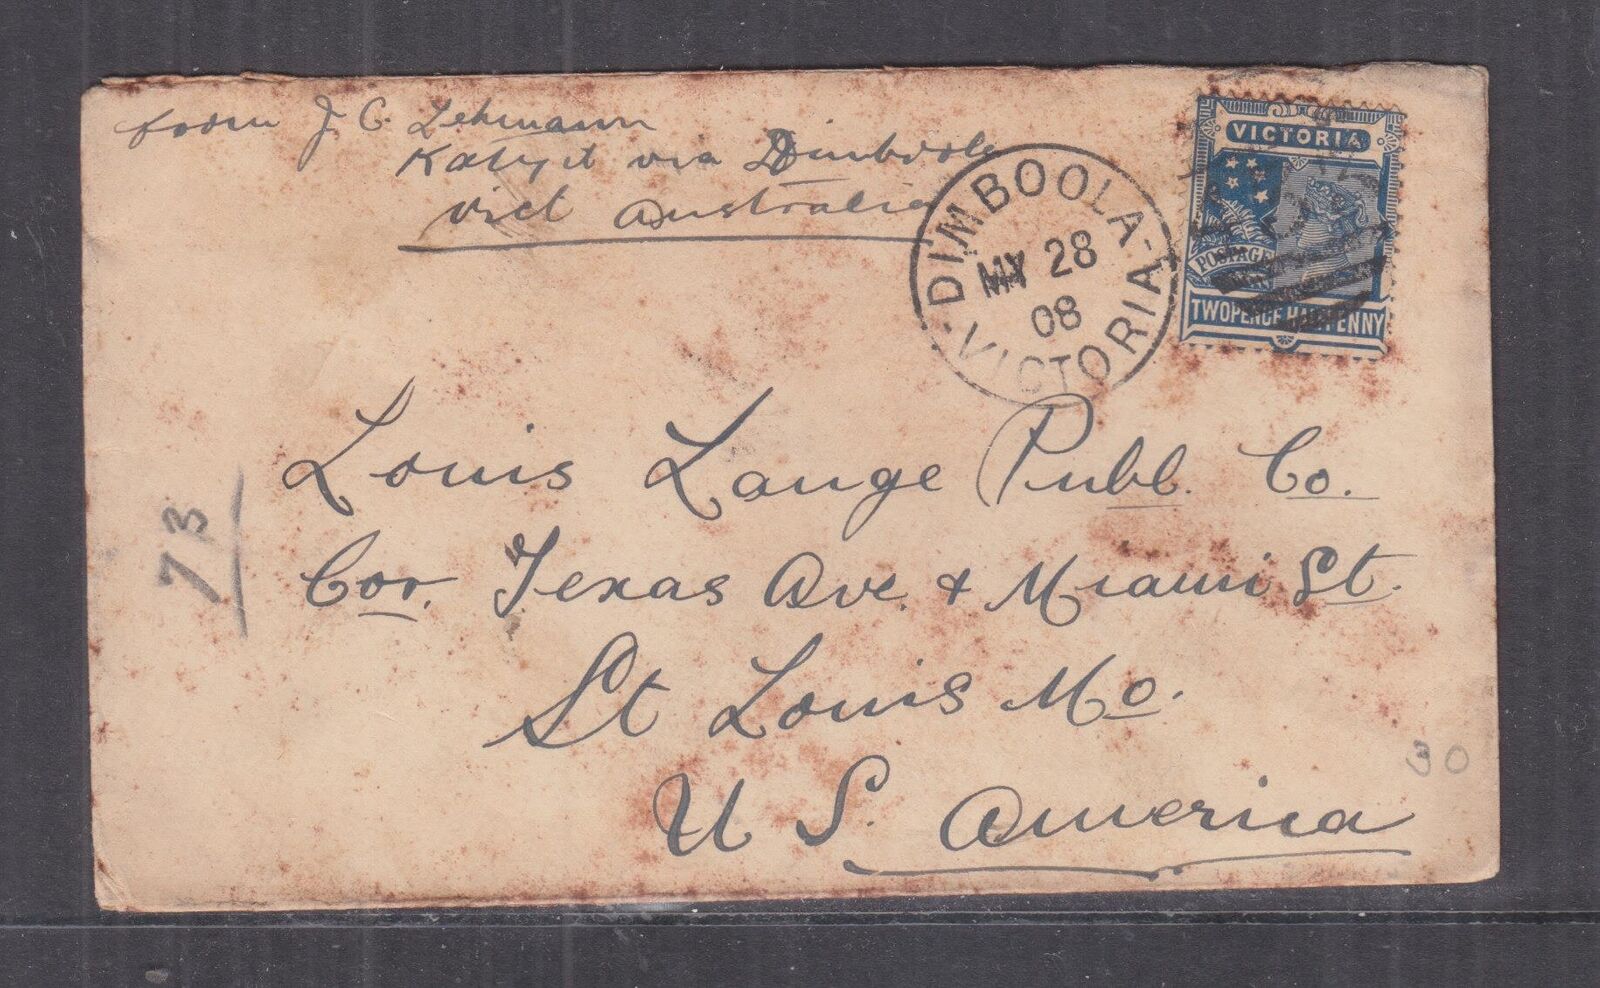 from J. C. Lehmann
Katyil via Dimboola
Vict Australia
DIMBOOLA
MY 28
08
VICTORIA
VICTORIA
POSTAGE
TWOPENCE HALFPENNY
Louis Lange Publ. Co.
Cor. Texas Ave. & Miami St.
St Louis Mo.
U S. America
7 B
30